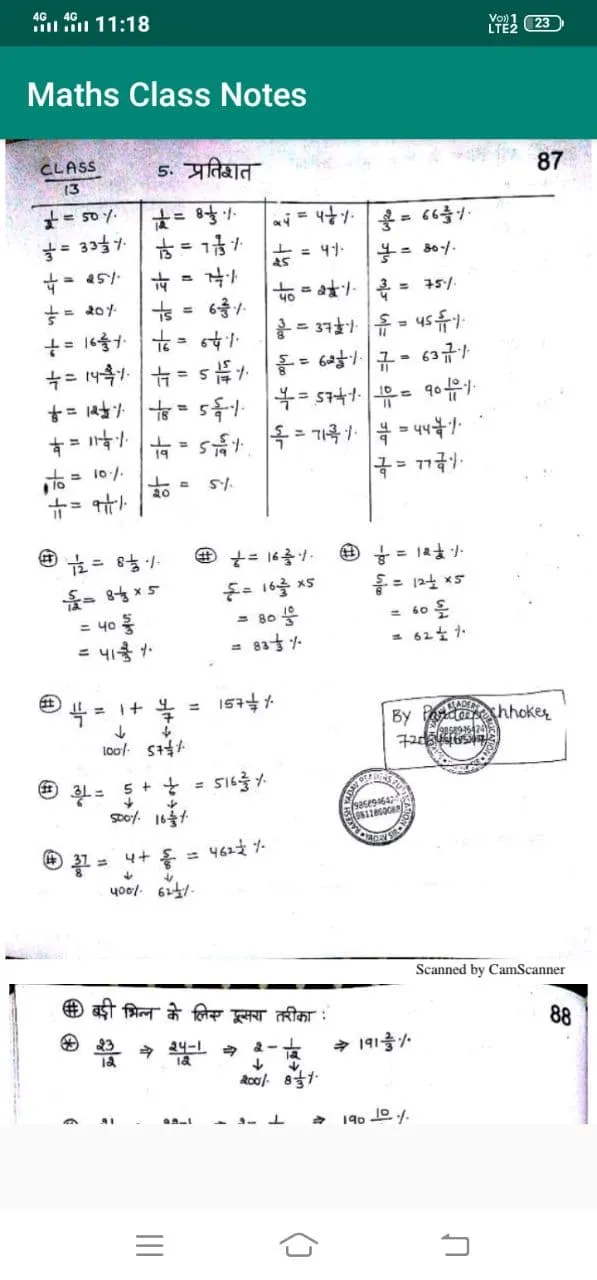 4G 4G 11:18 Vo)) 1 LTE2 23
Maths Class Notes
CLASS 13 5. प्रतिशत 87
1/2 = 50% 1/12 = 8 1/3 % 1/24 = 4 1/6 % 2/3 = 66 2/3 %
1/3 = 33 1/3 % 1/13 = 7 9/13 % 1/25 = 4% 4/5 = 80%
1/4 = 25% 1/14 = 7 1/7 % 1/40 = 2 1/2 % 3/4 = 75%
1/5 = 20% 1/15 = 6 2/3 % 3/8 = 37 1/2 % 5/11 = 45 5/11 %
1/6 = 16 2/3 % 1/16 = 6 1/4 % 5/8 = 62 1/2 % 7/11 = 63 7/11 %
1/7 = 14 2/7 % 1/17 = 5 15/17 % 4/7 = 57 1/7 % 10/11 = 90 10/11 %
1/8 = 12 1/2 % 1/18 = 5 5/9 % 5/7 = 71 3/7 % 4/9 = 44 4/9 %
1/9 = 11 1/9 % 1/19 = 5 5/19 % 7/9 = 77 7/9 %
1/10 = 10% 1/20 = 5%
1/11 = 9 1/11 %
# 1/12 = 8 1/3 % # 1/6 = 16 2/3 % # 1/8 = 12 1/2 %
5/12 = 8 1/3 × 5 5/6 = 16 2/3 × 5 5/8 = 12 1/2 × 5
= 40 5/3 = 80 10/3 = 60 5/2
= 41 2/3 % = 83 1/3 % = 62 1/2 %
# 11/7 = 1 + 4/7 = 157 1/7 %
↓ ↓
100% 57 1/7 %
By
# 31/6 = 5 + 1/6 = 516 2/3 %
↓ ↓
500% 16 2/3 %
# 37/8 = 4 + 5/8 = 462 1/2 %
↓ ↓
400% 62 1/2 %
Scanned by CamScanner
# बड़ी भिन्न के लिए दूसरा तरीका : 88
23/12 ⇒ 24-1/12 ⇒ 2 - 1/12 ⇒ 191 2/3 %
↓ ↓
200% 8 1/3 %
190 10 %